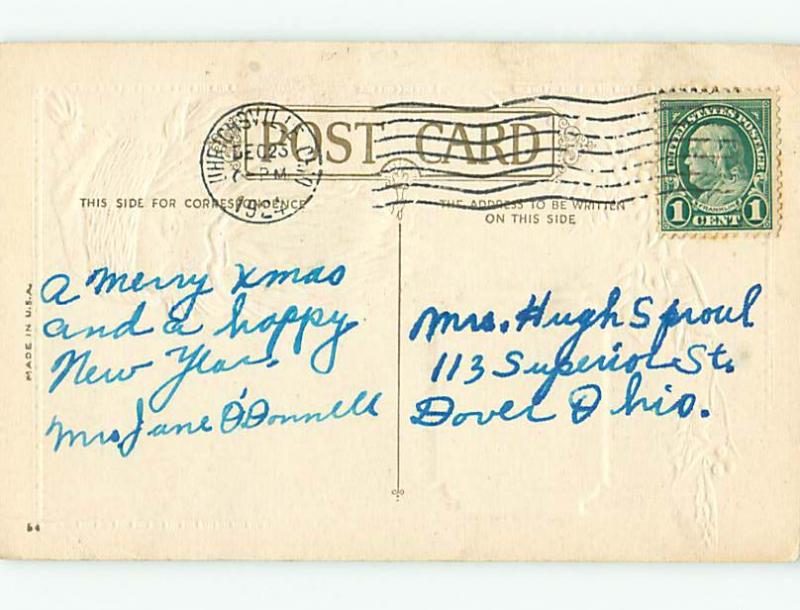 UHRICHSVILLE, OHIO
DEC 23
7-PM
1924
POST CARD
UNITED STATES POSTAGE
FRANKLIN
1 CENT 1
THIS SIDE FOR CORRESPONDENCE
THE ADDRESS TO BE WRITTEN
ON THIS SIDE
A Merry Xmas
and a happy
New Year.
Mrs. Jane O'Donnell
Mrs. Hugh Sproul
113 Superior St.
Dover Ohio.
MADE IN U.S.A.
54